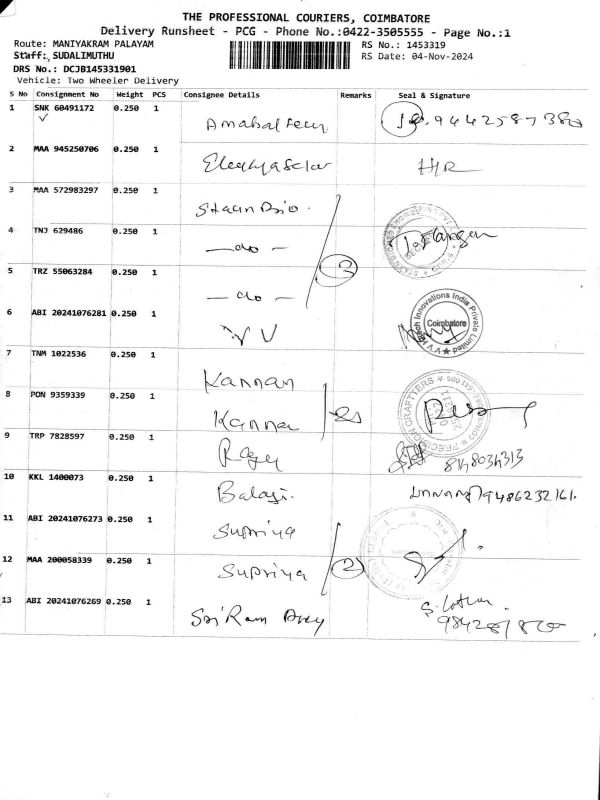 THE PROFESSIONAL COURIERS, COIMBATORE
Delivery Runsheet - PCG - Phone No.:0422-3505555 - Page No.:1
Route: MANIYAKRAM PALAYAM
RS No.: 1453319
Staff: SUDALIMUTHU
RS Date: 04-Nov-2024
DRS No.: DCJB145331901
Vehicle: Two Wheeler Delivery
S No Consignment No Weight PCS Consignee Details Remarks Seal & Signature
1 SNK 60491172 0.250 1
2 MAA 945250706 0.250 1 HR
3 MAA 572983297 0.250 1
4 TNJ 629486 0.250 1 — do —
5 TRZ 55063284 0.250 1 — do — 3
6 ABI 20241076281 0.250 1 V V Coimbatore
7 TNM 1022536 0.250 1 Kannan
8 PON 9359339 0.250 1 Kannan PRECISION CRAFTIERS
9 TRP 7828597 0.250 1 8148034313
10 KKL 1400073 0.250 1 Balaji. 9486232161.
11 ABI 20241076273 0.250 1 Supriya
12 MAA 200058339 0.250 1 Supriya 2
13 ABI 20241076269 0.250 1 Sri Ram